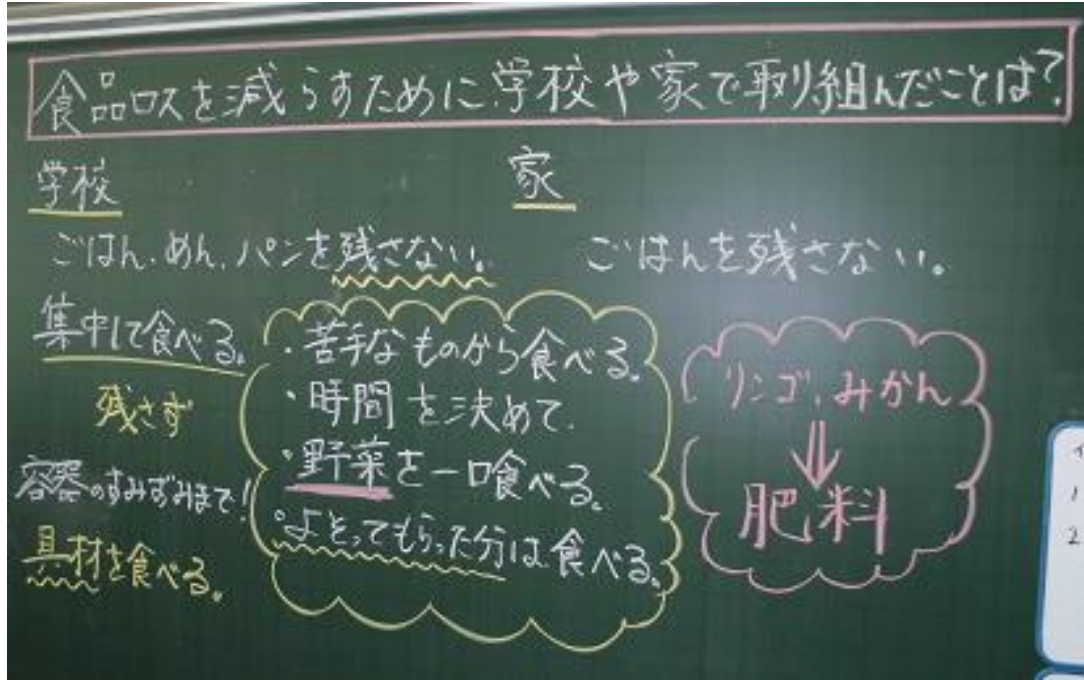 食品ロスを減らすために学校や家で取り組んだことは?
学校
ごはん、めん、パンを残さない。
集中して食べる。
残さず
容器のすみずみまで!
具材を食べる。
・苦手なものから食べる。
・時間を決めて
・野菜を一口食べる。
・よそってもらった分は食べる。
家
ごはんを残さない。
リンゴ、みかん
⇓
肥料
1
2